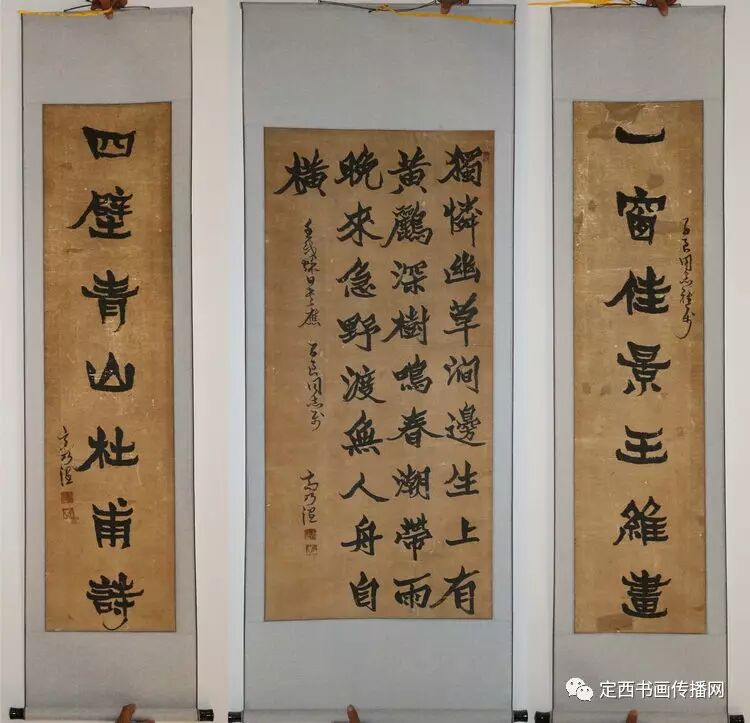 一窗佳景王維畫
同志
獨憐幽草澗邊生上有
黃鸝深樹鳴春潮帶雨
晚來急野渡無人舟自
橫
壬戌秋日 同志
四壁青山杜甫詩
定西书画传播网